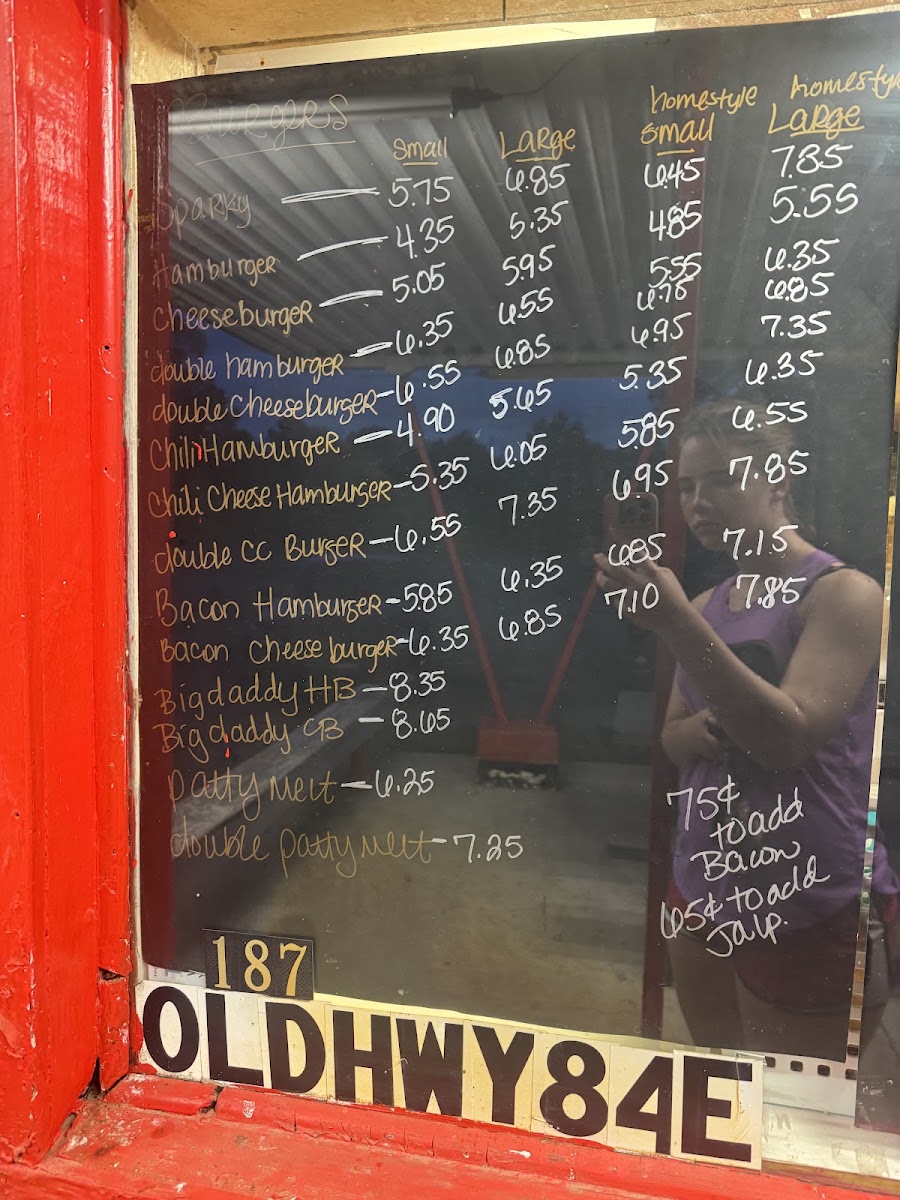 Burgers
Small Large homestyle small homestyle Large
Sparky — 5.75 6.85 6.45 7.85
Hamburger — 4.35 5.35 4.85 5.55
Cheeseburger — 5.05 5.95 5.55 6.35
double hamburger — 6.35 6.55 6.75 6.85
double Cheeseburger - 6.55 6.85 6.95 7.35
Chili Hamburger — 4.90 5.65 5.35 6.35
Chili Cheese Hamburger - 5.35 6.05 5.85 6.55
double CC Burger - 6.55 7.35 6.95 7.85
Bacon Hamburger - 5.85 6.35 6.85 7.15
Bacon Cheeseburger - 6.35 6.85 7.10 7.85
Big daddy HB — 8.35
Big daddy CB — 8.65
Patty Melt — 6.25
double Patty Melt - 7.25
75¢
to add
Bacon
65¢ to add
Jalp.
187
OLDHWY84E